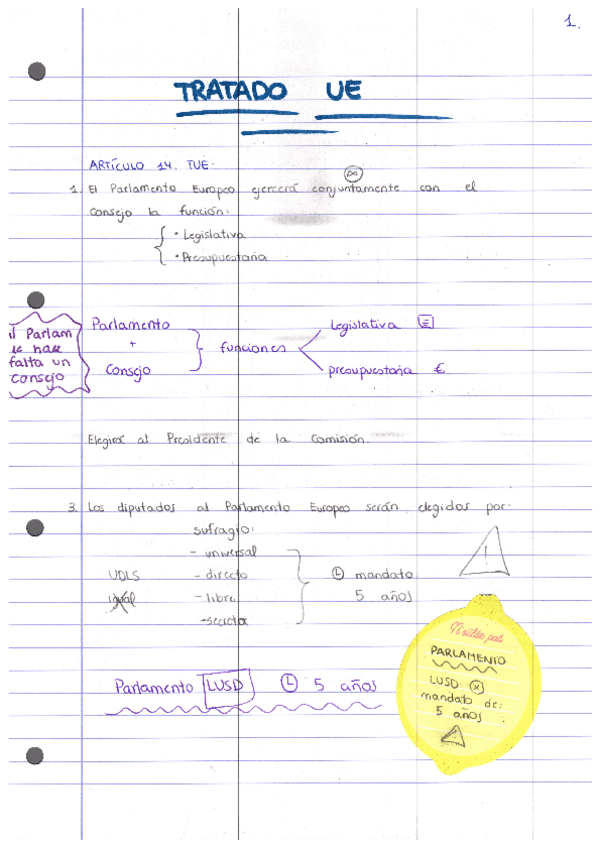 1.
TRATADO UE
ARTÍCULO 14. TUE.
1. El Parlamento Europeo ejercerá conjuntamente con el
Consejo la función:
• Legislativa
• Presupuestaria
Parlam
se hace
falta un
consejo
Parlamento
+
Consejo
funciones
Legislativa
presupuestaria €
Elegirá al Presidente de la Comisión.
3. Los diputados al Parlamento Europeo serán elegidos por:
sufragio:
- universal
UDLS - directo
igual - libre
- secreto
L mandato
5 años
!
Parlamento LUSD L 5 años
N'oublie pas
PARLAMENTO
LUSD
mandato de:
5 años